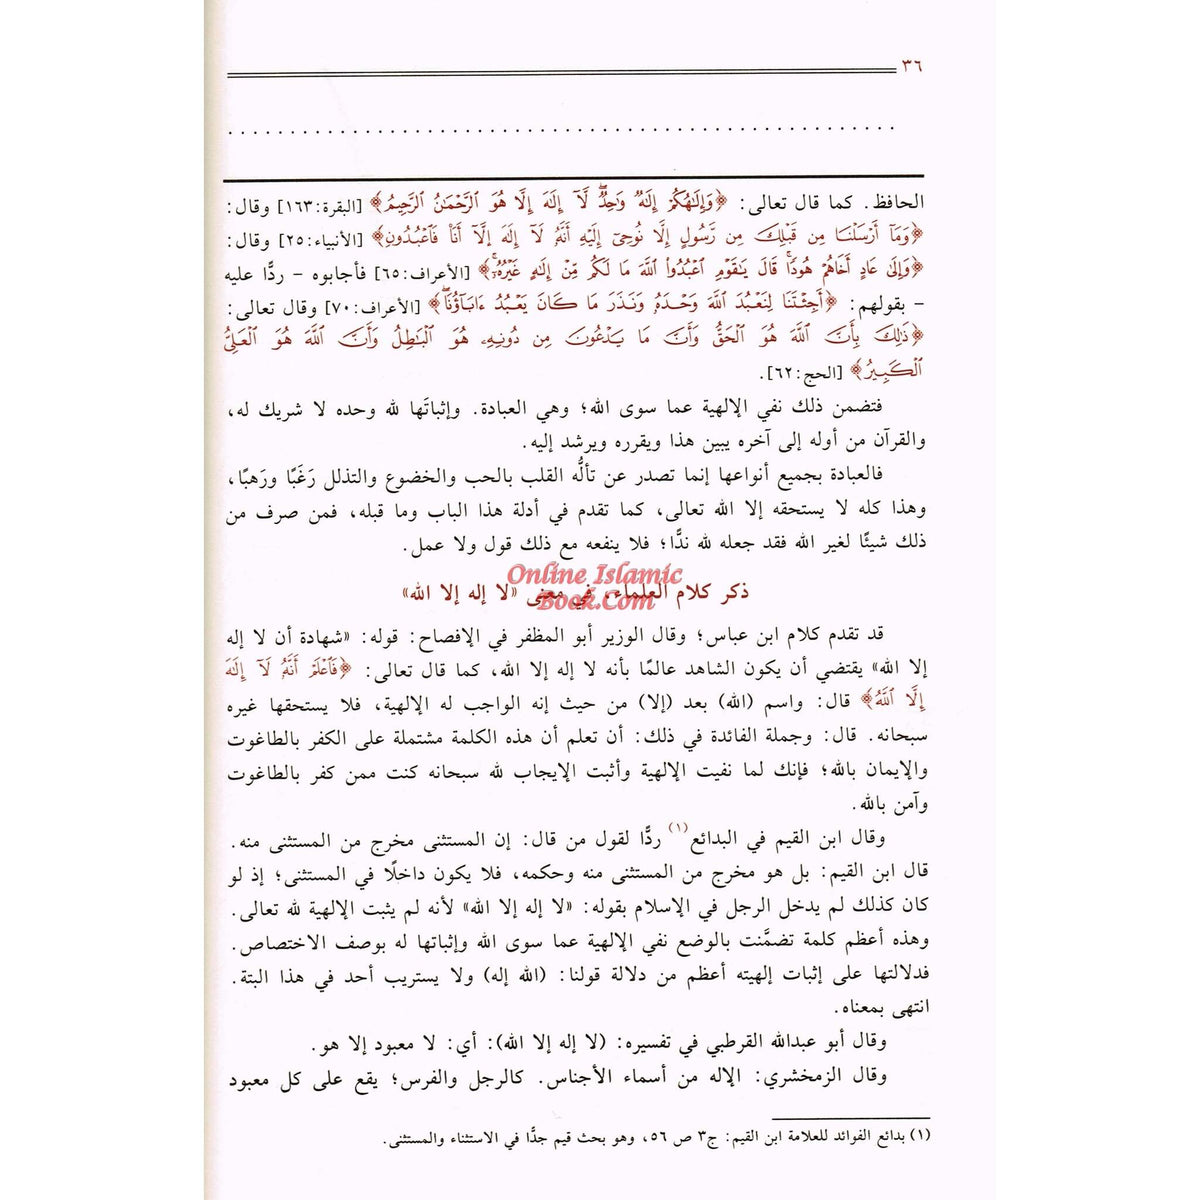 ٣٦
الحافظ. كما قال تعالى: ﴿وَإِلَٰهُكُمۡ إِلَٰهٞ وَٰحِدٞۖ لَّآ إِلَٰهَ إِلَّا هُوَ ٱلرَّحۡمَٰنُ ٱلرَّحِيمُ﴾ [البقرة:١٦٣] وقال:
﴿وَمَآ أَرۡسَلۡنَا مِن قَبۡلِكَ مِن رَّسُولٍ إِلَّا نُوحِيٓ إِلَيۡهِ أَنَّهُۥ لَآ إِلَٰهَ إِلَّآ أَنَا۠ فَٱعۡبُدُونِ﴾ [الأنبياء:٢٥] وقال:
﴿وَإِلَىٰ عَادٍ أَخَاهُمۡ هُودٗاۚ قَالَ يَٰقَوۡمِ ٱعۡبُدُواْ ٱللَّهَ مَا لَكُم مِّنۡ إِلَٰهٍ غَيۡرُهُۥٓۚ﴾ [الأعراف:٦٥] فأجابوه - ردًّا عليه
- بقولهم: ﴿أَجِئۡتَنَا لِنَعۡبُدَ ٱللَّهَ وَحۡدَهُۥ وَنَذَرَ مَا كَانَ يَعۡبُدُ ءَابَآؤُنَا﴾ [الأعراف:٧٠] وقال تعالى:
﴿ذَٰلِكَ بِأَنَّ ٱللَّهَ هُوَ ٱلۡحَقُّ وَأَنَّ مَا يَدۡعُونَ مِن دُونِهِۦ هُوَ ٱلۡبَٰطِلُ وَأَنَّ ٱللَّهَ هُوَ ٱلۡعَلِيُّ
ٱلۡكَبِيرُ﴾ [الحج:٦٢].
فتضمن ذلك نفي الإلهية عما سوى الله؛ وهي العبادة. وإثباتَها لله وحده لا شريك له،
والقرآن من أوله إلى آخره يبين هذا ويقرره ويرشد إليه.
فالعبادة بجميع أنواعها إنما تصدر عن تألُّه القلب بالحب والخضوع والتذلل رَغَبًا ورَهبًا،
وهذا كله لا يستحقه إلا الله تعالى، كما تقدم في أدلة هذا الباب وما قبله، فمن صرف من
ذلك شيئًا لغير الله فقد جعله لله ندًّا؛ فلا ينفعه مع ذلك قول ولا عمل.
Online Islamic
Book.Com
ذكر كلام العلماء، في معنى «لا إله إلا الله»
قد تقدم كلام ابن عباس؛ وقال الوزير أبو المظفر في الإفصاح: قوله: «شهادة أن لا إله
إلا الله» يقتضي أن يكون الشاهد عالمًا بأنه لا إله إلا الله، كما قال تعالى: ﴿فَٱعۡلَمۡ أَنَّهُۥ لَآ إِلَٰهَ
إِلَّا ٱللَّهُ﴾ قال: واسم (الله) بعد (إلا) من حيث إنه الواجب له الإلهية، فلا يستحقها غيره
سبحانه. قال: وجملة الفائدة في ذلك: أن تعلم أن هذه الكلمة مشتملة على الكفر بالطاغوت
والإيمان بالله؛ فإنك لما نفيت الإلهية وأثبت الإيجاب لله سبحانه كنت ممن كفر بالطاغوت
وآمن بالله.
وقال ابن القيم في البدائع(١) ردًّا لقول من قال: إن المستثنى مخرج من المستثنى منه.
قال ابن القيم: بل هو مخرج من المستثنى منه وحكمه، فلا يكون داخلًا في المستثنى؛ إذ لو
كان كذلك لم يدخل الرجل في الإسلام بقوله: «لا إله إلا الله» لأنه لم يثبت الإلهية لله تعالى.
وهذه أعظم كلمة تضمَّنت بالوضع نفي الإلهية عما سوى الله وإثباتها له بوصف الاختصاص.
فدلالتها على إثبات إلهيته أعظم من دلالة قولنا: (الله إله) ولا يستريب أحد في هذا البتة.
انتهى بمعناه.
وقال أبو عبدالله القرطبي في تفسيره: (لا إله إلا الله): أي: لا معبود إلا هو.
وقال الزمخشري: الإله من أسماء الأجناس. كالرجل والفرس؛ يقع على كل معبود
(١) بدائع الفوائد للعلامة ابن القيم: ج٣ ص ٥٦، وهو بحث قيم جدًّا في الاستثناء والمستثنى.